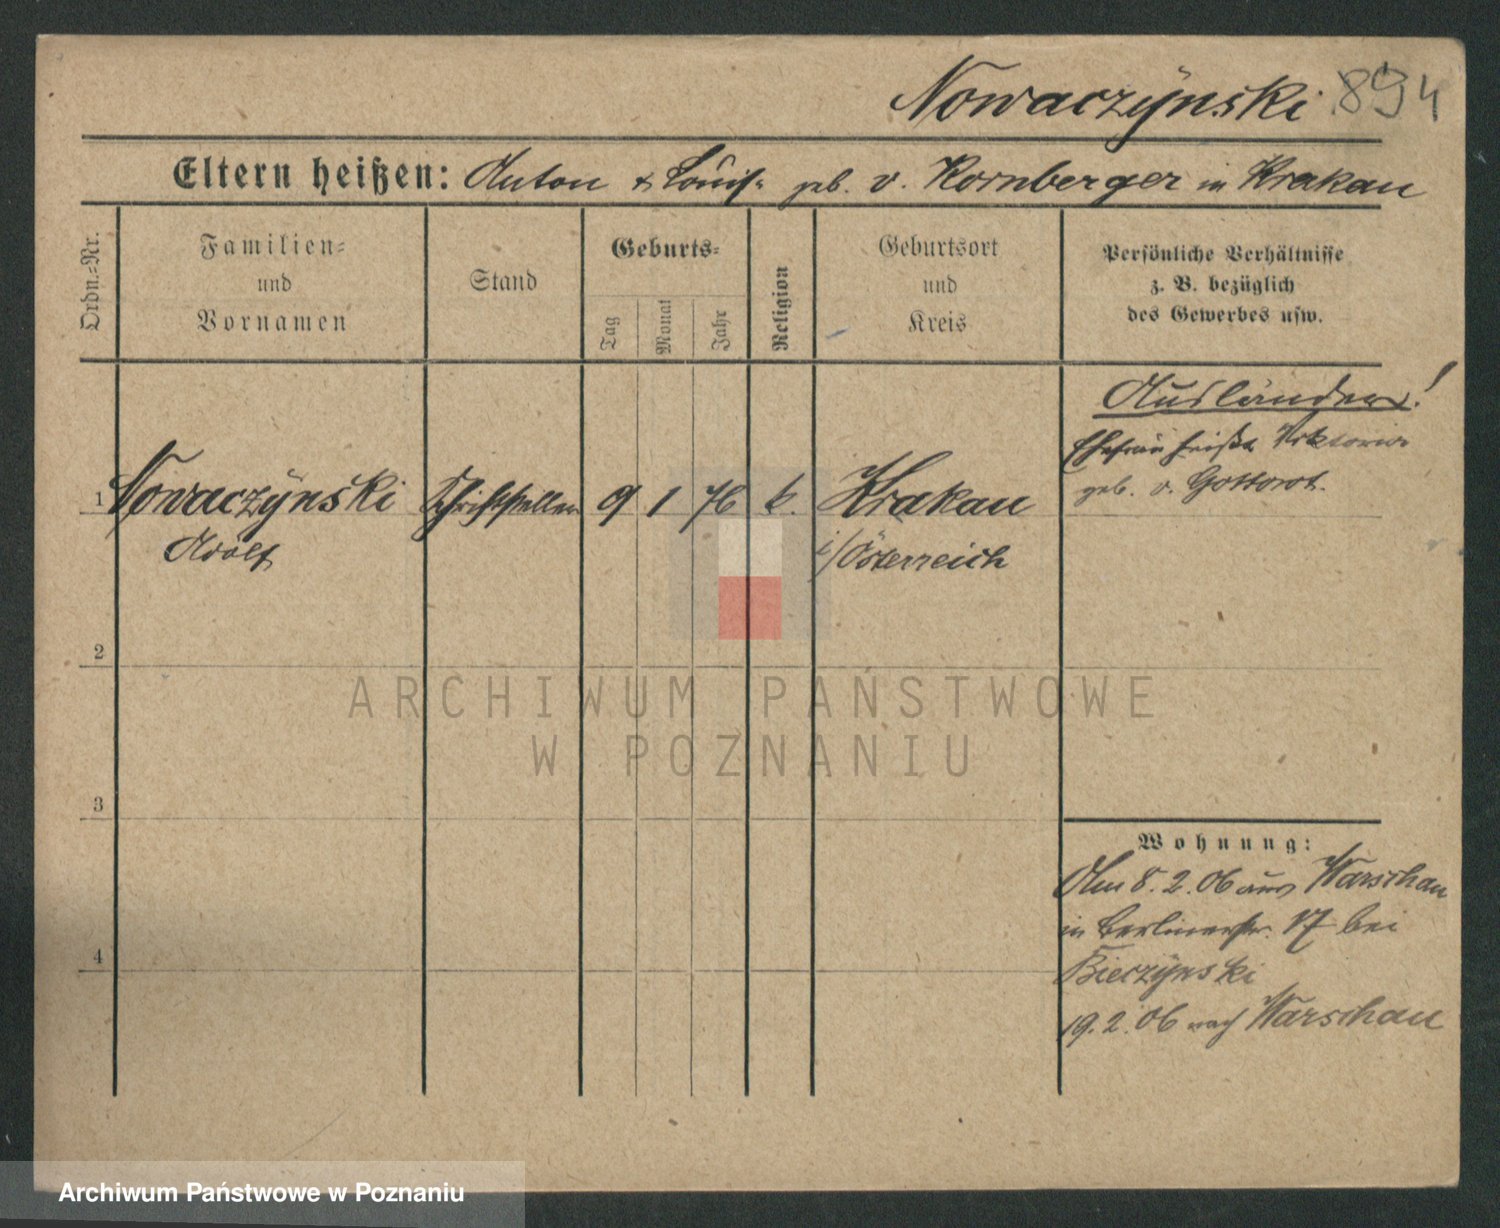 Nowaczÿnski 894
Eltern heißen: Anton & Louise geb. v. Kornberger in Krakau
Ordn.=Nr.
Familien=
und
Vornamen
Stand
Geburts=
Tag
Monat
Jahr
Religion
Geburtsort
und
Kreis
Persönliche Verhältnisse
z. B. bezüglich
des Gewerbes usw.
Ausländer!
Ehefrau heißt Viktoria
geb. v.
1 Nowaczÿnski Schriftsteller 9 1 76 k. Krakau
Adolf i/Österreich
2
3
4
Wohnung:
Am 8. 2. 06 aus Warschau
in Berlinerstr. 17 bei
Bieczÿnski
19. 2. 06 nach Warschau
ARCHIWUM PAŃSTWOWE
W POZNANIU
Archiwum Państwowe w Poznaniu